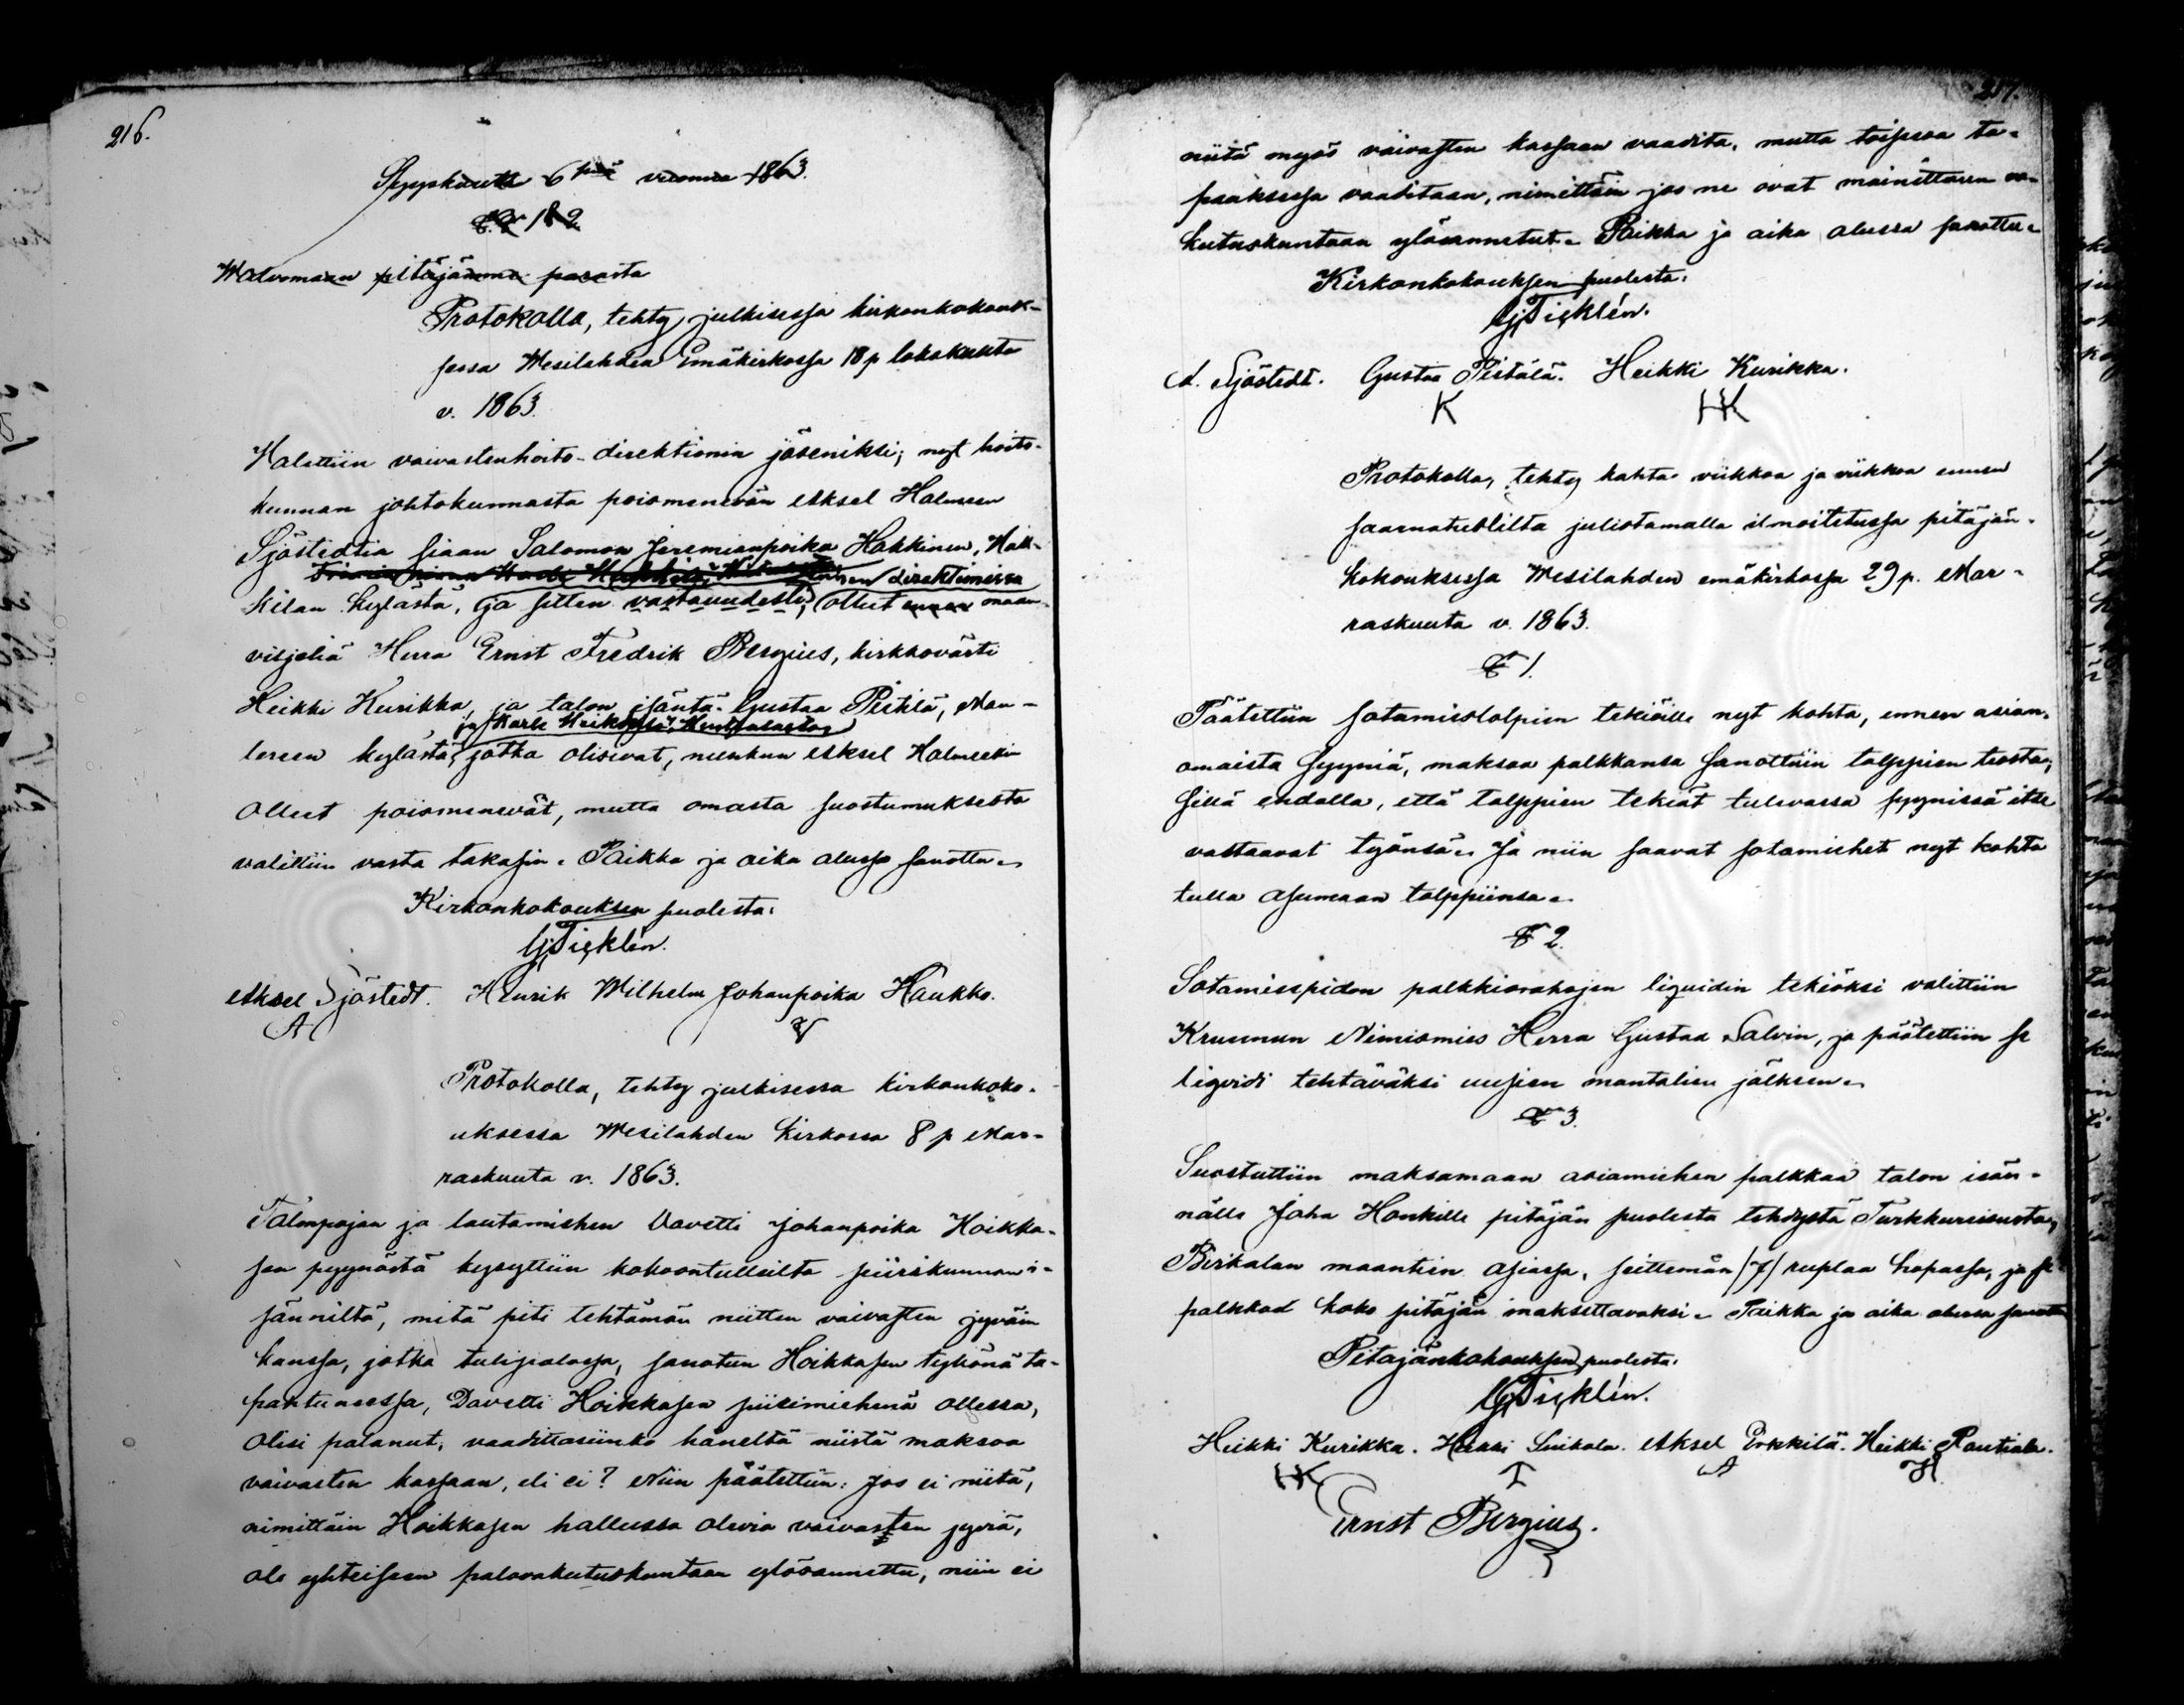 216.
Syyskuutta 6 pnä vuonna 1863.
§§ 1 & 2
Watvomaan pitäjämme parasta
Protokolla, tehty julkisessa kirkonkokouk-
sessa Wesilahden Emäkirkossa 18 p lokakuuta
v. 1863.
Walittiin vaivastenhoito-direktionin jäseniksi; nyt hoito-
kunnan johtokunnasta poismenevän Aksel Halmeen
Sjöstedtia siaan Salomon Jeremianpoika Hakkinen, Hak-
direktionissa
kilan kylästä, ja sitten vastauudesti, ollut ennen maan-
viljeliä Herra Ernst Fredrik Bergius, kirkkovärti
Heikki Kurikka, ja talon isäntä Gustaa Pietilä, Nau-
ja Karle Heikkilä,
lersen kylästä, jotka olisivat, niinkun Aksel Halmeekin
ollut poismenevät, mutta omasta suostumuksesta
valittiin vasta takasin. Paikka ja aika alussa sanottu.
Kirkonkokouksen puolesta:
Gj. Ticklén.
Aksel Sjöstedt. Henrik Wilhelm Johanpoika Haukko.
A
Protokolla, tehty julkisessa kirkonkoko-
uksessa Wesilahden kirkossa 8 p Mar-
raskuuta v. 1863.
Talonpojan ja lautamiehen Davetti Johanpoika Hoikka-
sen pyynöstä kysyttiin kokoontulleilta piirikunnan i-
sänniltä, mitä piti tehtämän niitten vaivasten jyväin
kanssa, jotka tulipalossa, sanotun Hoikkasen tykönä ta-
pahtuneessa, Davetti Hoikkasen piirimiehenä ollessa,
olisi palanut, vaadittasiinko häneltä niistä maksoa
vaivasten kassaan, eli ei? Niin päätettiin: Jos ei niitä,
nimittäin Hoikkasen hallussa olevia vaivasten jyviä,
ole yhteiseen palovakutuskuntaan ylösannettu, niin ei
217.
niitä myös vaivasten kassaan vaadita, mutta toisessa ta-
pauksessa vaaditaan, nimittäin jos ne ovat mainittuun va-
kutuskuntaan ylösannetut. Paikka ja aika alussa sanottu.
Kirkonkokouksen puolesta:
Gj. Ticklén.
A. Sjöstedt. Gustaa Pietälä. Heikki Kurikka.
K HK
Protokolla, tehty kahta viikkoa ja viikkoa ennen
saarnatuolilta julistamalla ilmoitetussa pitäjän-
kokouksessa Wesilahden emäkirkossa 29 p. Mar-
raskuuta v. 1863.
§ 1.
Päätettiin sotamiestolpien tekiöille nyt kohta, ennen asian-
omaista syyniä, maksaa palkkansa sanottuin tolppien teosta,
sillä endolla, että tolppien tekiät tulevassa syynissä itse
vastaavat työnsä. Ja niin saavat sotamiehet nyt kohta
tulla asumaan tolppiinsa.
§ 2.
Sotamiespidon palkkiorahojen liqvidin tekiöksi valittiin
Kruunun Nimismies Herra Gustaa Salvin, ja päätettiin se
liqvidi tehtäväksi uusien mantalien jälkeen.
§ 3.
Suostuttiin maksamaan asiamiehen palkkaa talon isän-
nälle Juha Honkille pitäjän puolesta tehdystä Turkkureisusta,
Birkalan maantien asiassa, seittemän (7) ruplaa hopassa, ja se
palkkad koko pitäjän maksettavaksi. Paikka ja aika alussa sanottu
Pitäjänkokouksen puolesta:
Gj. Ticklén.
Heikki Kurikka. Heikki Suikala. Aksel Erkkilä. Heikki Rautiala.
HK I A H.
Ernst Bergius.